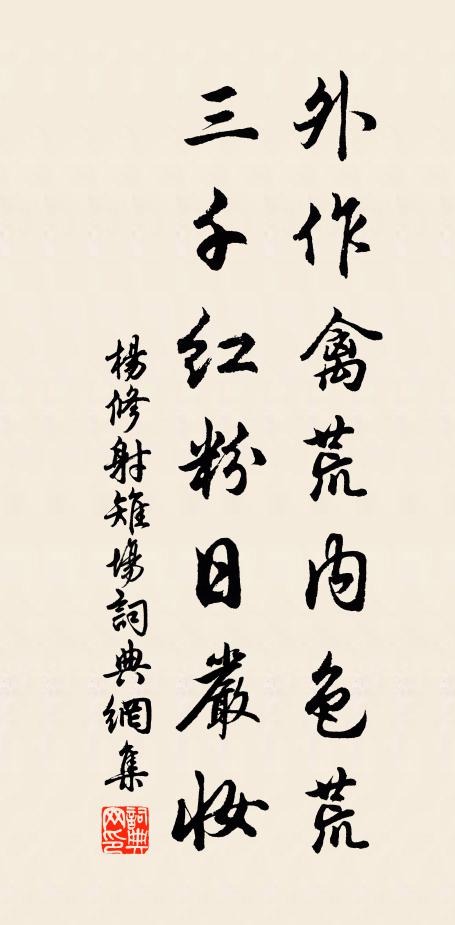 外作禽荒内色荒
三千红粉日嚴妝
楊修射雉場詞典網集
詞典网印